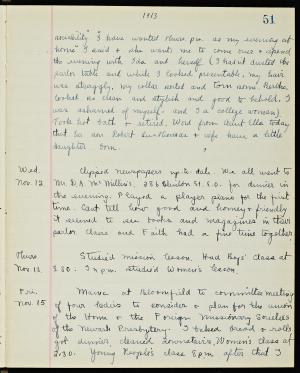 1913
51
sociability" I have wanted                as my evenings at
home" I said & she wants me to come over & spend
the evening with Ida and herself (I hadn't dusted the
parlor table and while I looked presentable, my hair
was straggly, my collar                and torn some. Bertha
looked so clean and stylish and good to behold. I
was ashamed of myself - and I a college woman)
Took hot bath & retired. Word from Aunt Ella today
that her son Robert                & wife have a little
daughter born.
Wed.
Nov. 12
Clipped newspapers up to date. We all went to
Mr. D. A. McMillin's, 286 Clinton St. E.O. for dinner in
the evening. Played a player piano for the first
time. Can't tell how good and homey & friendly
it seemed to see books and magazines in their
parlor. Claire and Faith had a fine time together
Thurs
Nov 13
Studied mission lesson. Had Boys' class at
3.30. In p.m. studied Women's lesson.
Fri.
Nov. 15
              at Bloomfield to committee meeting
of four ladies to consider & plan for the union
of the Home & the Foreign Missionary Societies
of the Newark Presbytery. I baked bread & rolls
got dinner, cleaned downstairs, Women's class at
2:30. Young People's class 8 pm after that I